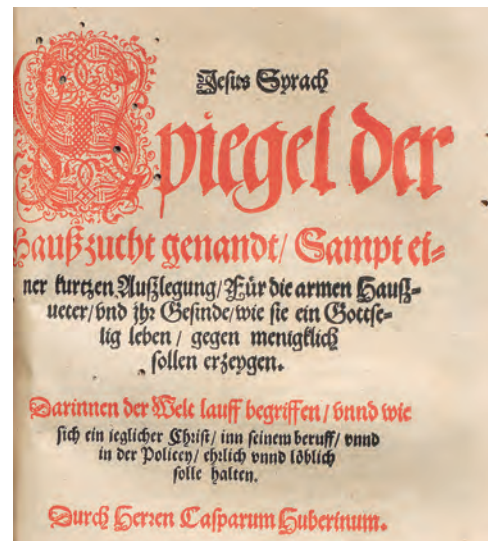 Jesus Syrach
Spiegel der
Haußzucht genandt/ Sampt ei⸗
ner kurtzen Außlegung/ Für die armen Hauß⸗
ueter/ vnd jhr Gesinde/ wie sie ein Gottse⸗
lig leben / gegen menigklich
sollen erzeygen.
Darinnen der Welt lauff begriffen/ vnnd wie
sich ein ieglicher Christ/ inn seinem beruff/ vnnd
in der Policey/ ehrlich vnnd löblich
solle halten.
Durch Herren Casparum Huberinum.